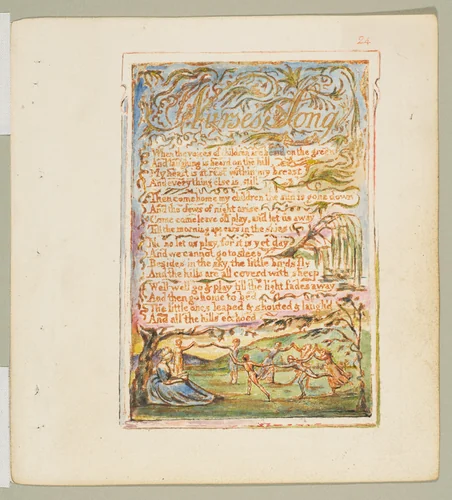 24
Nurse's Song
When the voices of children are heard on the green
And laughing is heard on the hill,
My heart is at rest within my breast
And every thing else is still
Then come home my children the sun is gone down
And the dews of night arise
Come come leave off play, and let us away
Till the morning appears in the skies
No no let us play, for it is yet day
And we cannot go to sleep
Besides in the sky, the little birds fly
And the hills are all coverd with sheep
Well well go & play till the light fades away
And then go home to bed
The little ones leaped & shouted & laugh'd
And all the hills ecchoed